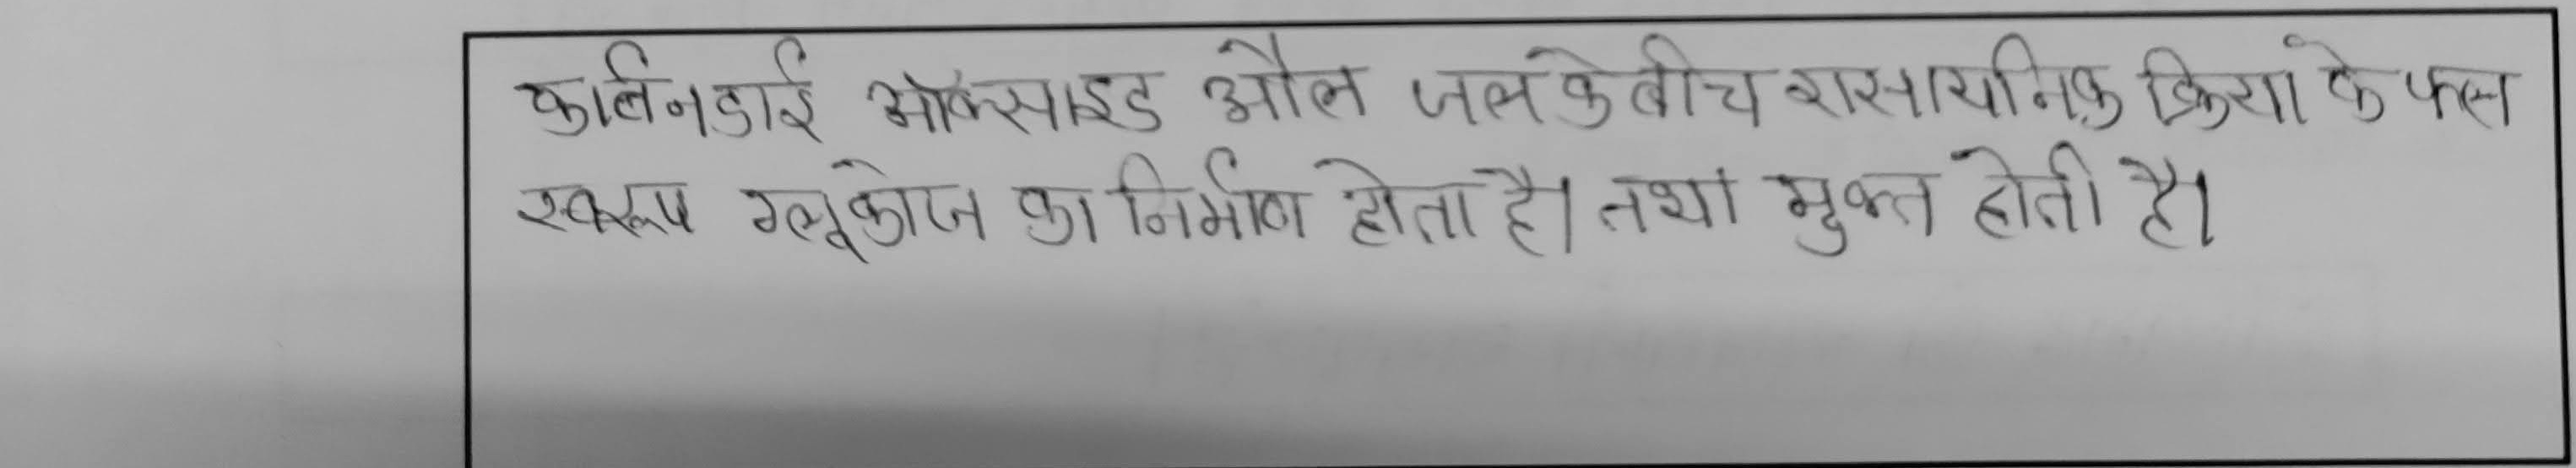 कार्बनडाई ऑक्साइड औल जल के बीच रासायनिक क्रिया के फल
स्वरूप ग्लूकोज का निर्माण होता है। तथा मुक्त होती है।